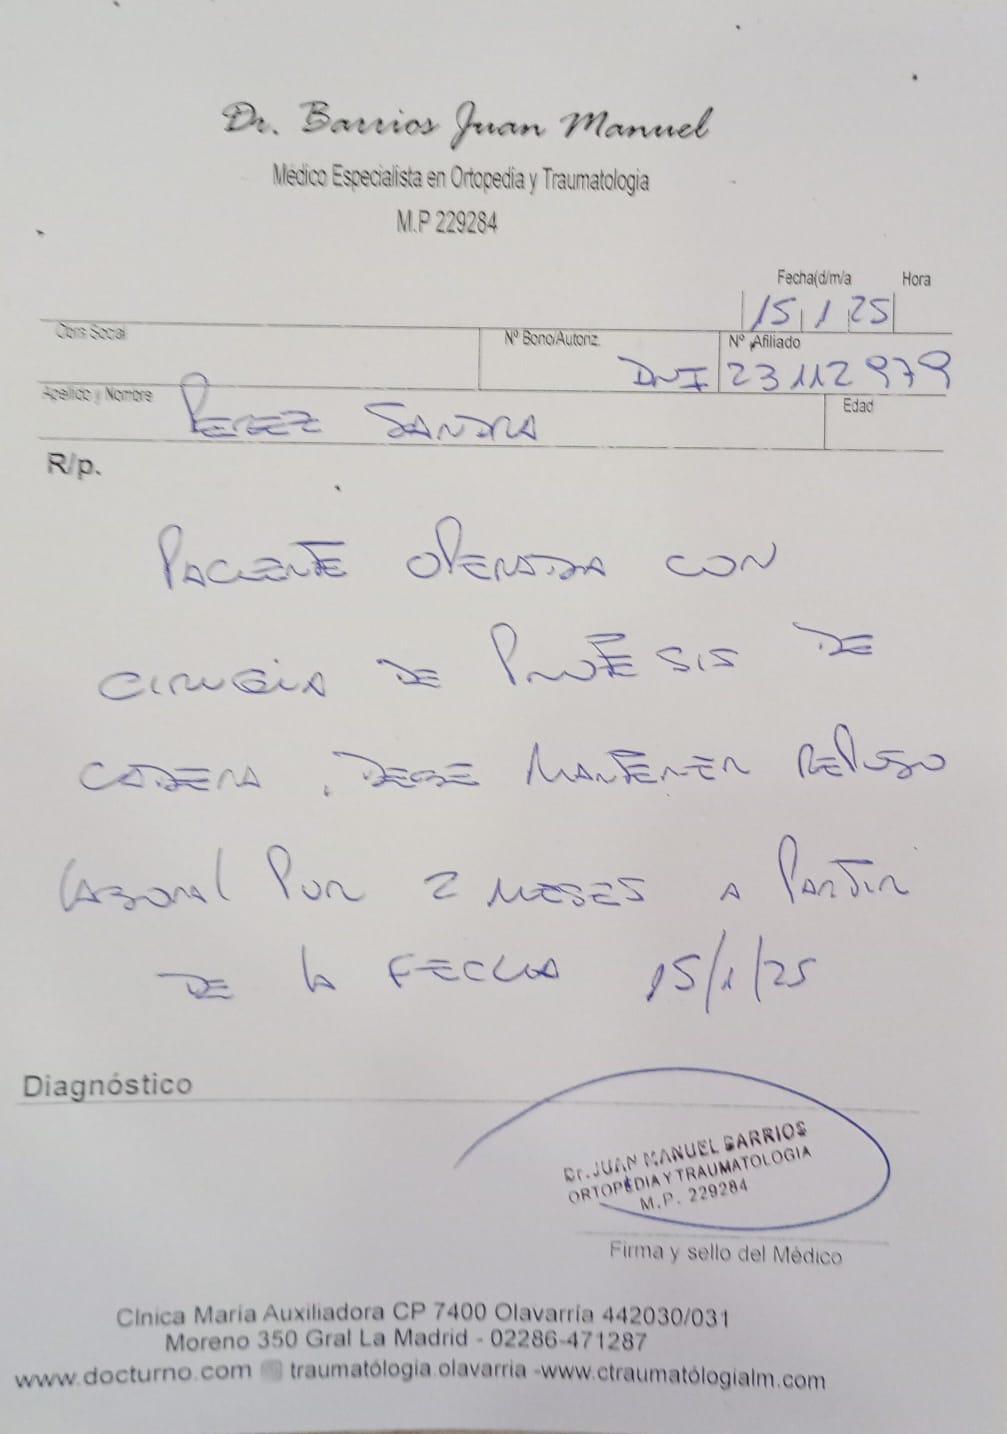 Dr. Barrios Juan Manuel
Médico Especialista en Ortopedia y Traumatologia
M.P 229284
Fecha(d/m/a Hora
15 1 25
Obra Social Nº Bono/Autoriz. Nº Afiliado
DNI 23112979
Apellido y Nombre PEREZ SANDRA Edad
R/p.
PACIENTE OPERADA CON
CIRUGIA DE PROTESIS DE
CADERA, DEBE MANTENER REPOSO
LABORAL POR 2 MESES A PARTIR
DE LA FECHA 15/1/25
Diagnóstico
Dr. JUAN MANUEL BARRIOS
ORTOPEDIA Y TRAUMATOLOGIA
M.P. 229284
Firma y sello del Médico
Clnica María Auxiliadora CP 7400 Olavarría 442030/031
Moreno 350 Gral La Madrid - 02286-471287
www.docturno.com traumatólogia.olavarria -www.ctraumatólogialm.com